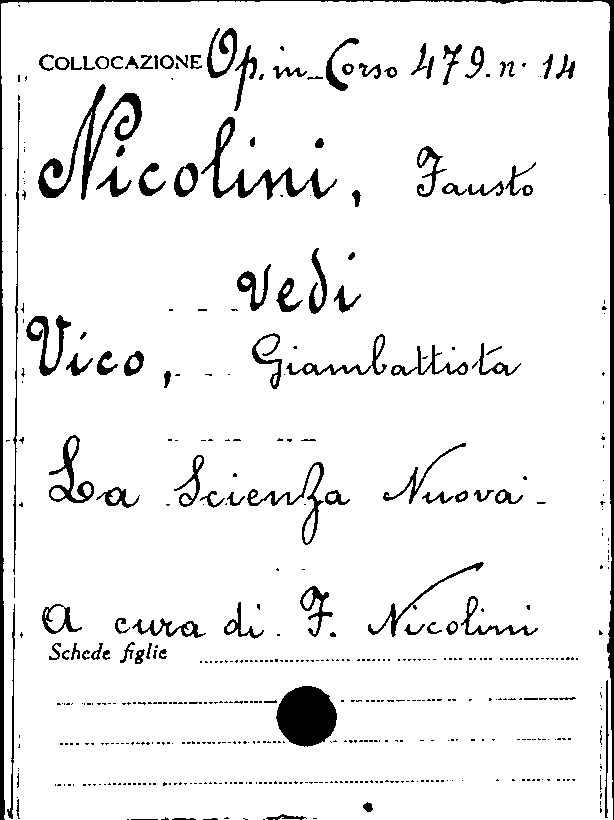 COLLOCAZIONE Op. in Corso 479. n. 14
Nicolini, Fausto
vedi
Vico, Giambattista
La Scienza Nuova -
A cura di F. Nicolini
Schede figlie